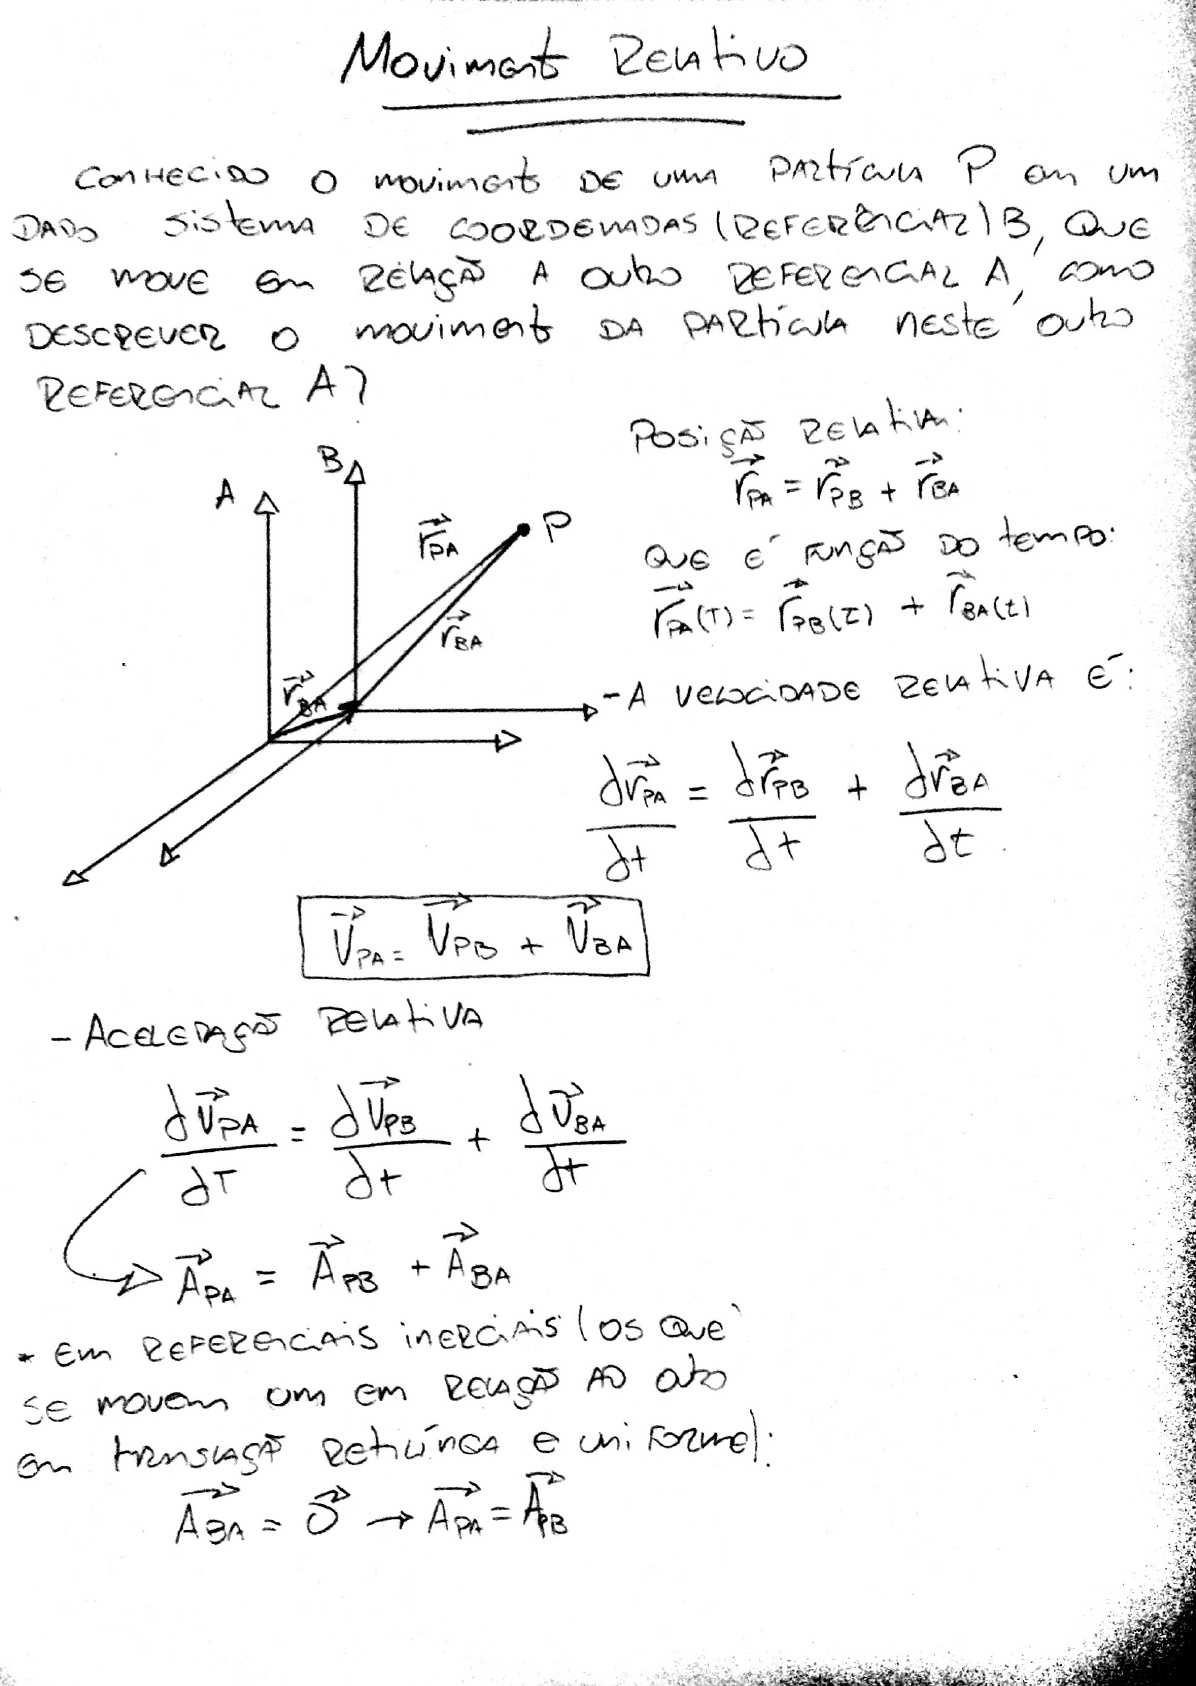 Movimento Relativo
Conhecido o movimento de uma partícula P em um
dado sistema de coordenadas (referêncial) B, que
se move em relação a outro referencial A, como
descrever o movimento da partícula neste outro
referencial A?
Posição relativa:
r⃗PA = r⃗PB + r⃗BA
que é função do tempo:
r⃗PA(t) = r⃗PB(t) + r⃗BA(t)
A
B
P
r⃗PA
r⃗BA
r⃗BA
- A velocidade relativa é:
dr⃗PA/dt = dr⃗PB/dt + dr⃗BA/dt
V⃗PA = V⃗PB + V⃗BA
- Aceleração relativa
dV⃗PA/dt = dV⃗PB/dt + dV⃗BA/dt
A⃗PA = A⃗PB + A⃗BA
* Em referenciais inerciais (os que
se movem um em relação ao outro
em translação retilínea e uniforme):
A⃗BA = 0⃗ → A⃗PA = A⃗PB